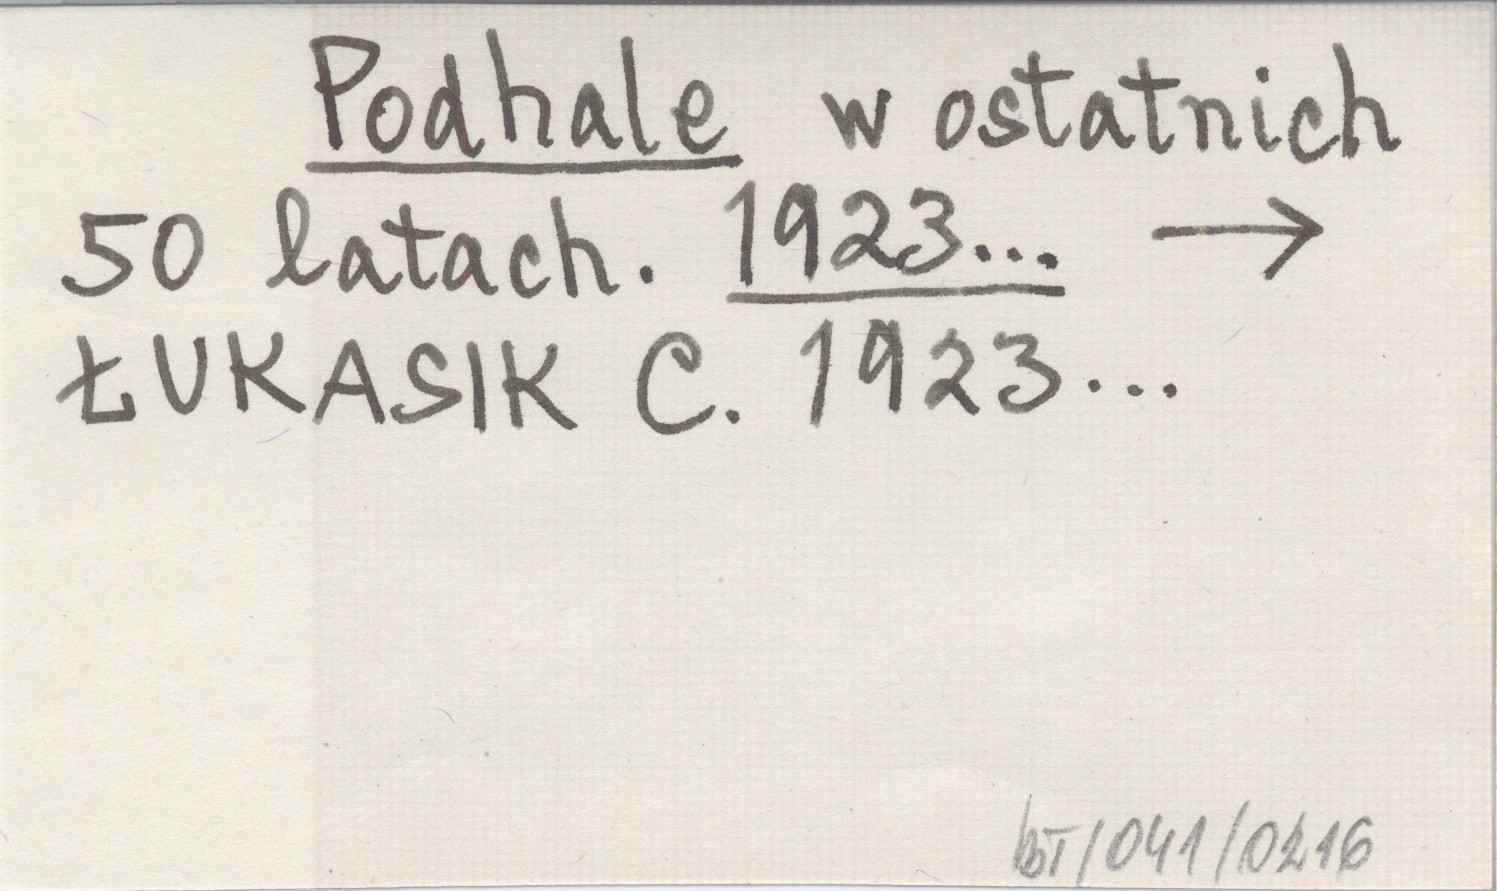 Podhale w ostatnich
50 latach. 1923... →
ŁUKASIK C. 1923...
bT/041/0216